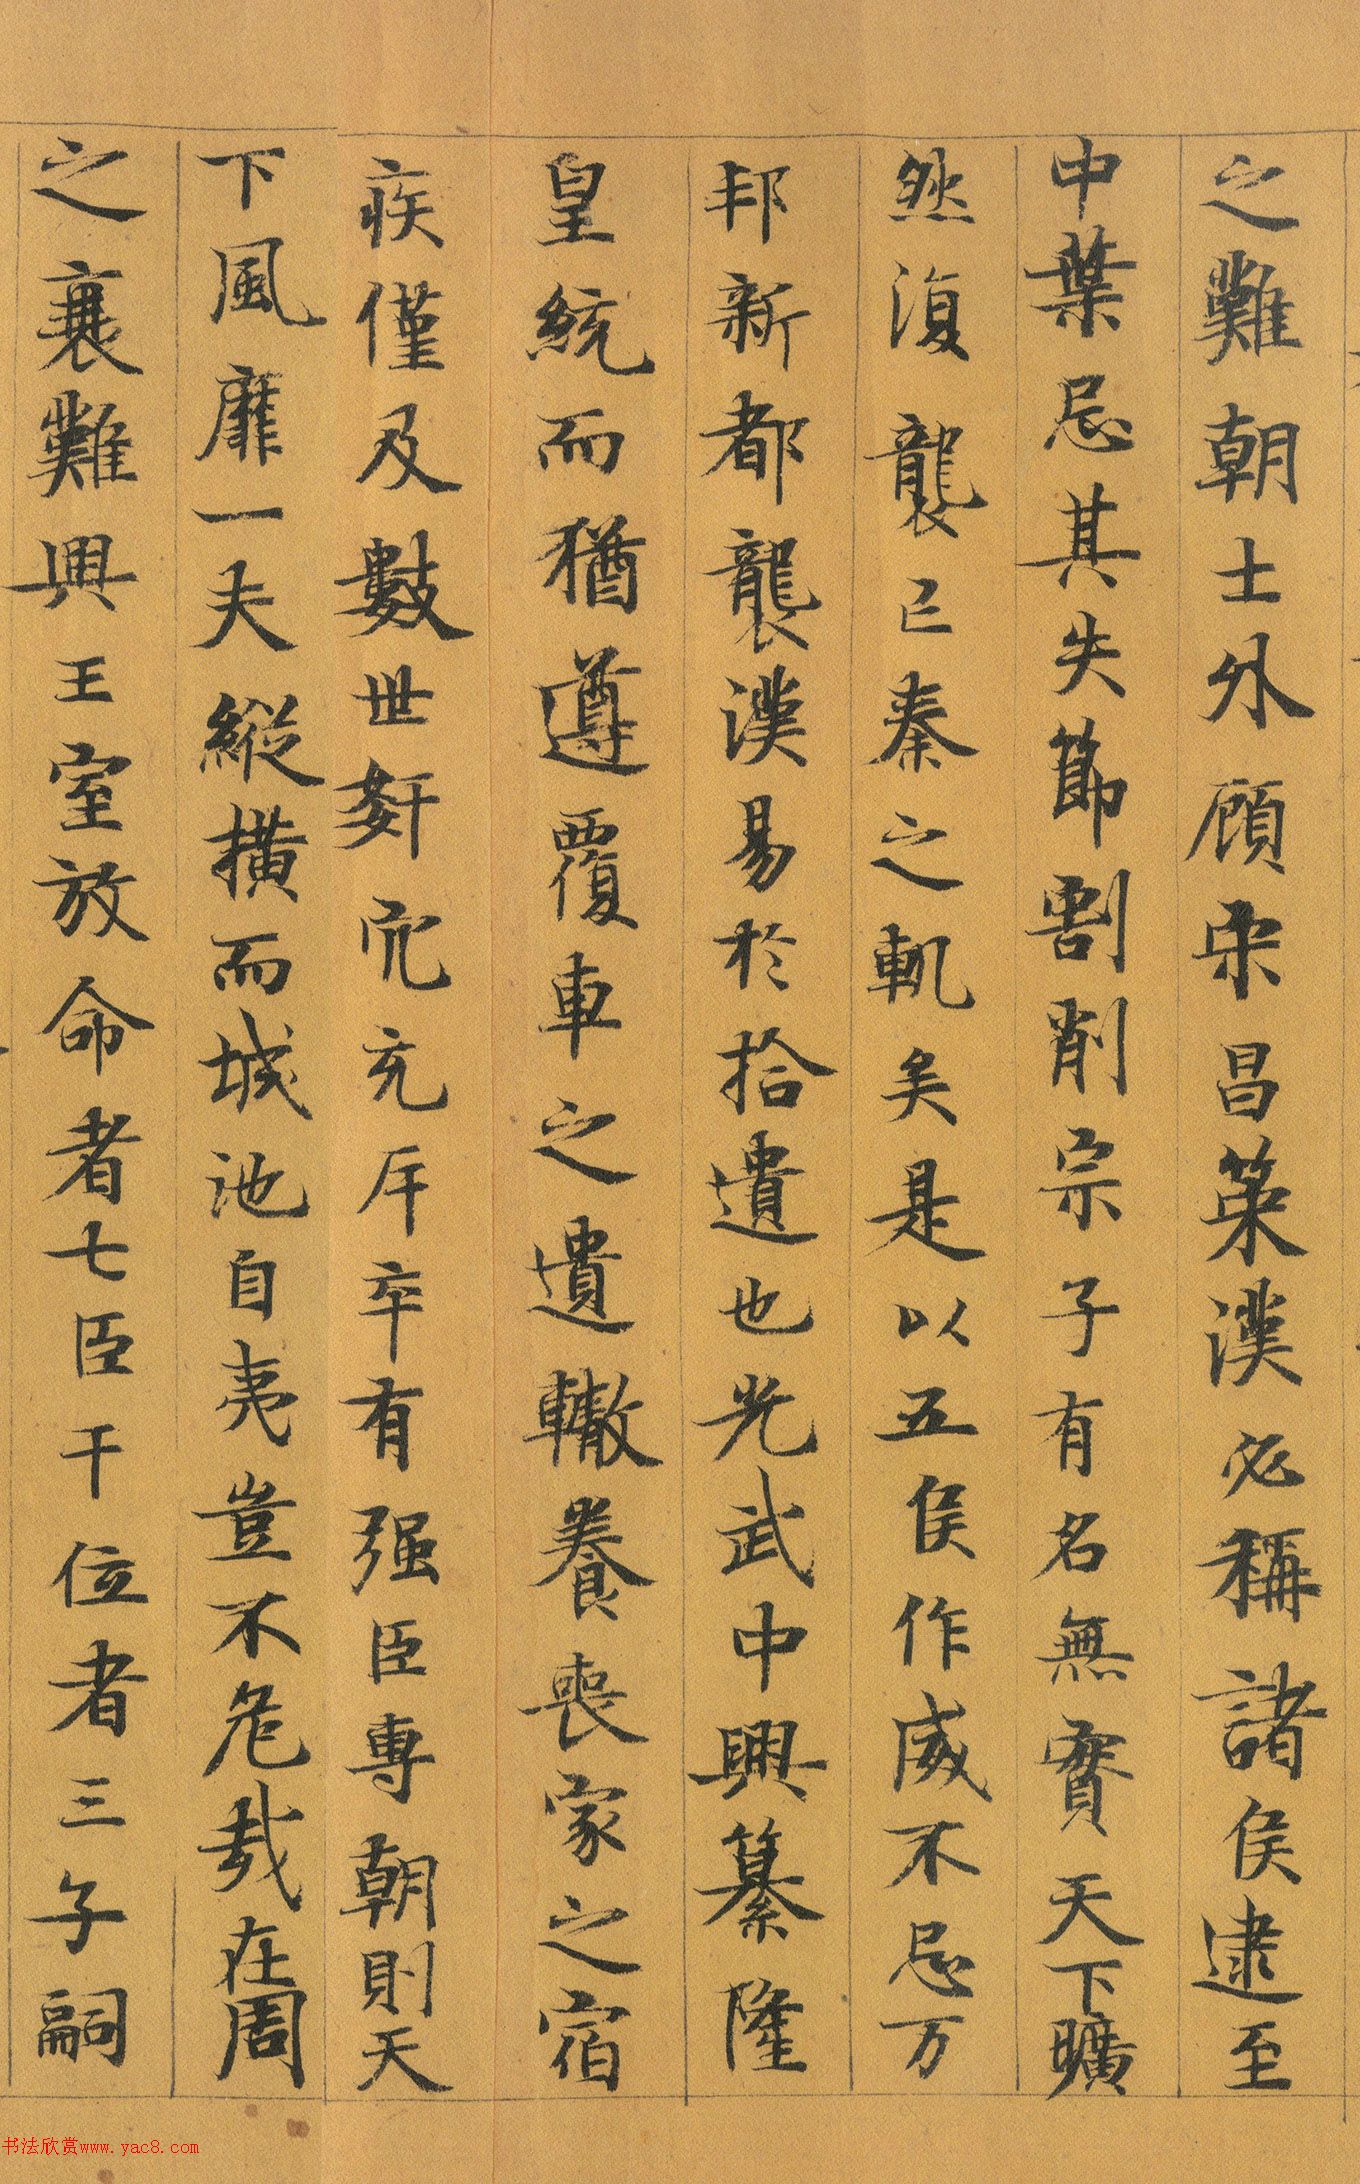 之難朝士外顧宋昌策漢必稱諸侯逮至
中葉忌其失節割削宗子有名無實天下曠
然復襲亡秦之軌矣是以五侯作威不忌万
邦新都襲漢易於拾遺也光武中興纂隆
皇統而猶遵覆車之遺轍養喪家之宿
疾僅及數世姧宄充斥卒有强臣專朝則天
下風靡一夫縱橫而城池自夷豈不危哉在周
之衰難興王室放命者七臣干位者三子嗣
书法欣赏www.yac8.com